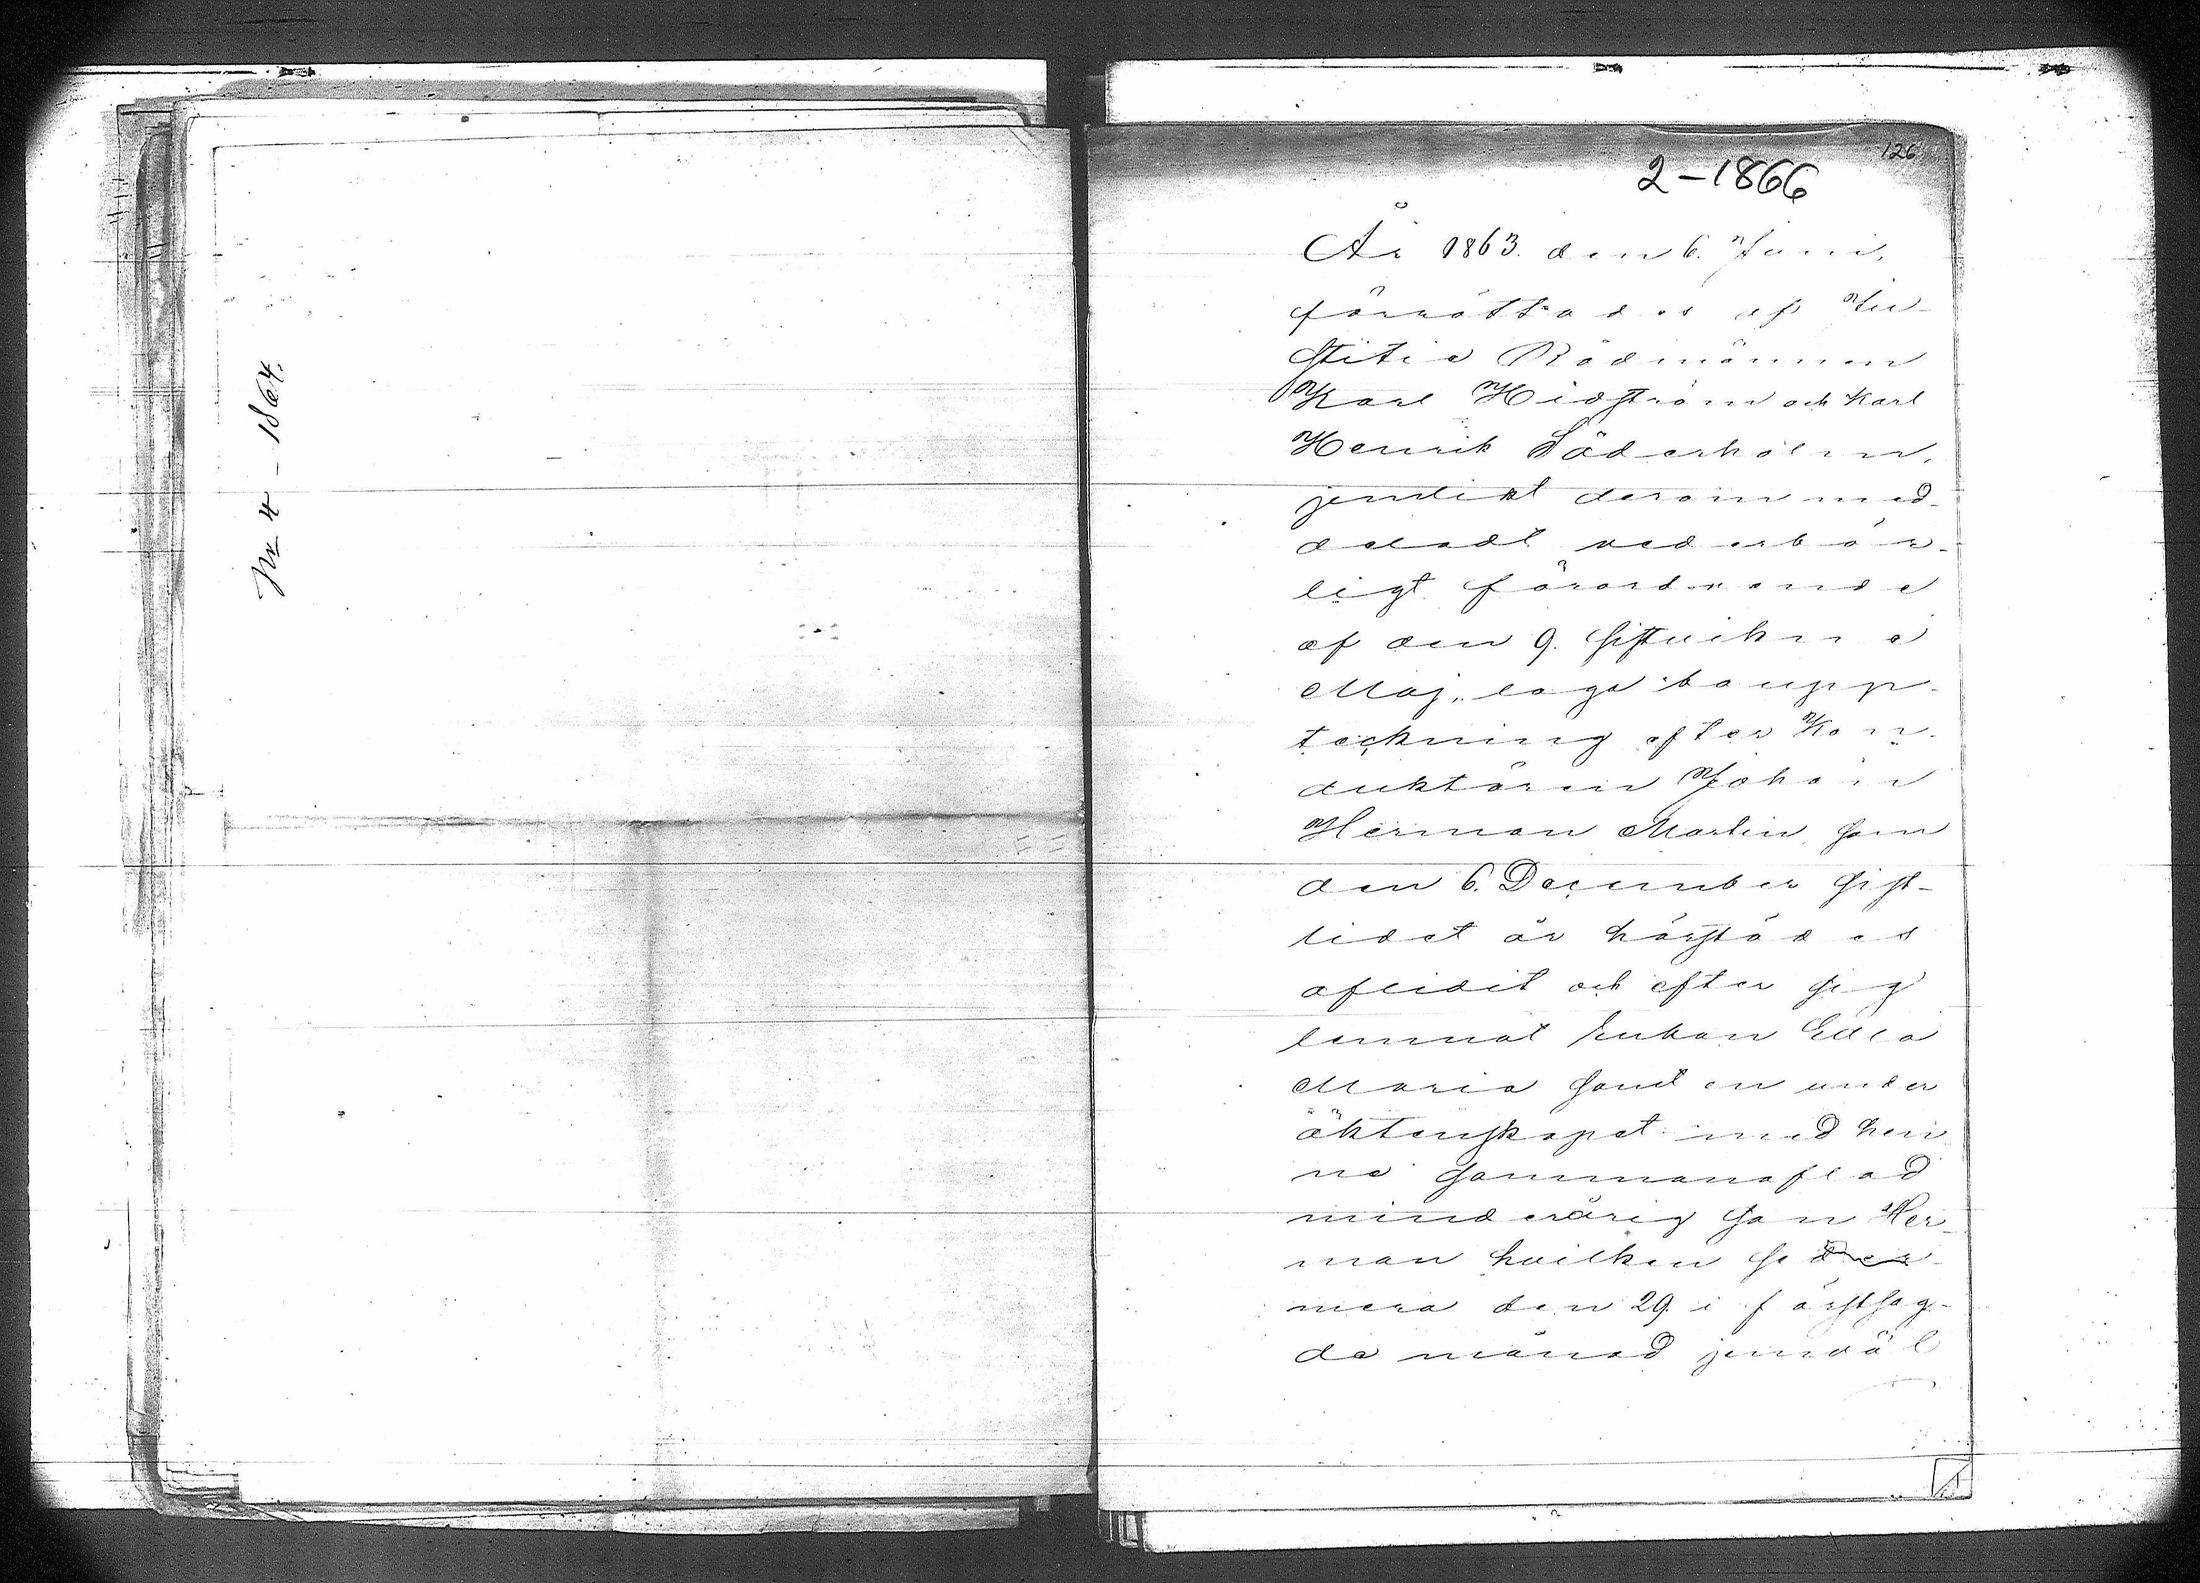 Nr 4 - 1864.
126
2-1866
År 1863. den 6. Juni,
förrättades af Ju-
stitie Rådmännen
Karl Hidström och Karl
Henrik Söderholm,
jemlikt derom med-
deladt vederbör-
ligt förordnande
af den 9. sistvikne
Maj, laga bouppt-
teckning efter Kon-
duktören Johan
Herman Martin, som
den 6. December sist-
lidet år härstädes
aflidit och efter sig
lemnat Enkan Edla
Maria samt en under
äktenskapet med hen
ne sammanaflad
minderårig son Her-
man hvilken seder-
mera den 29 i förstsag-
de månad jemväl